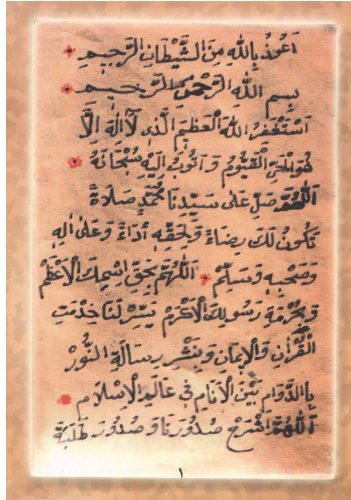 اَعُوذُ بِاللّٰهِ مِنَ الشَّيْطَانِ الرَّجِيمِ
بِسْمِ اللّٰهِ الرَّحْمٰنِ الرَّحِيمِ
اَسْتَغْفِرُ اللّٰهَ الْعَظِيمَ الَّذِى لَا اِلٰهَ اِلَّا
هُوَ الْحَىُّ الْقَيُّومُ وَ اَتُوبُ اِلَيْهِ سُبْحَانَهُ
اَللّٰهُمَّ صَلِّ عَلٰى سَيِّدِنَا مُحَمَّدٍ صَلَاةً
تَكُونُ لَكَ رِضَاءً وَ لِحَقِّهِ اَدَاءً وَ عَلٰى اٰلِهِ
وَ صَحْبِهِ وَ سَلِّمْ اَللّٰهُمَّ بِحَقِّ اِسْمِكَ الْاَعْظَمِ
وَ بِحُرْمَةِ رَسُولِكَ الْاَكْرَمِ يَسِّرْ لَنَا خِدْمَتِ
الْقُرْاٰنِ وَالْاِيمَانِ وَبِنَشْرِ رِسَالَةِ النُّورْ
بِالدَّوَامِ بَيْنَ الْاَنَامِ فِى عَالَمِ الْاِسْلَامِ
اَللّٰهُمَّ اشْرَحْ صُدُورَنَا وَ صُدُورَ طَلَبَةِ
١